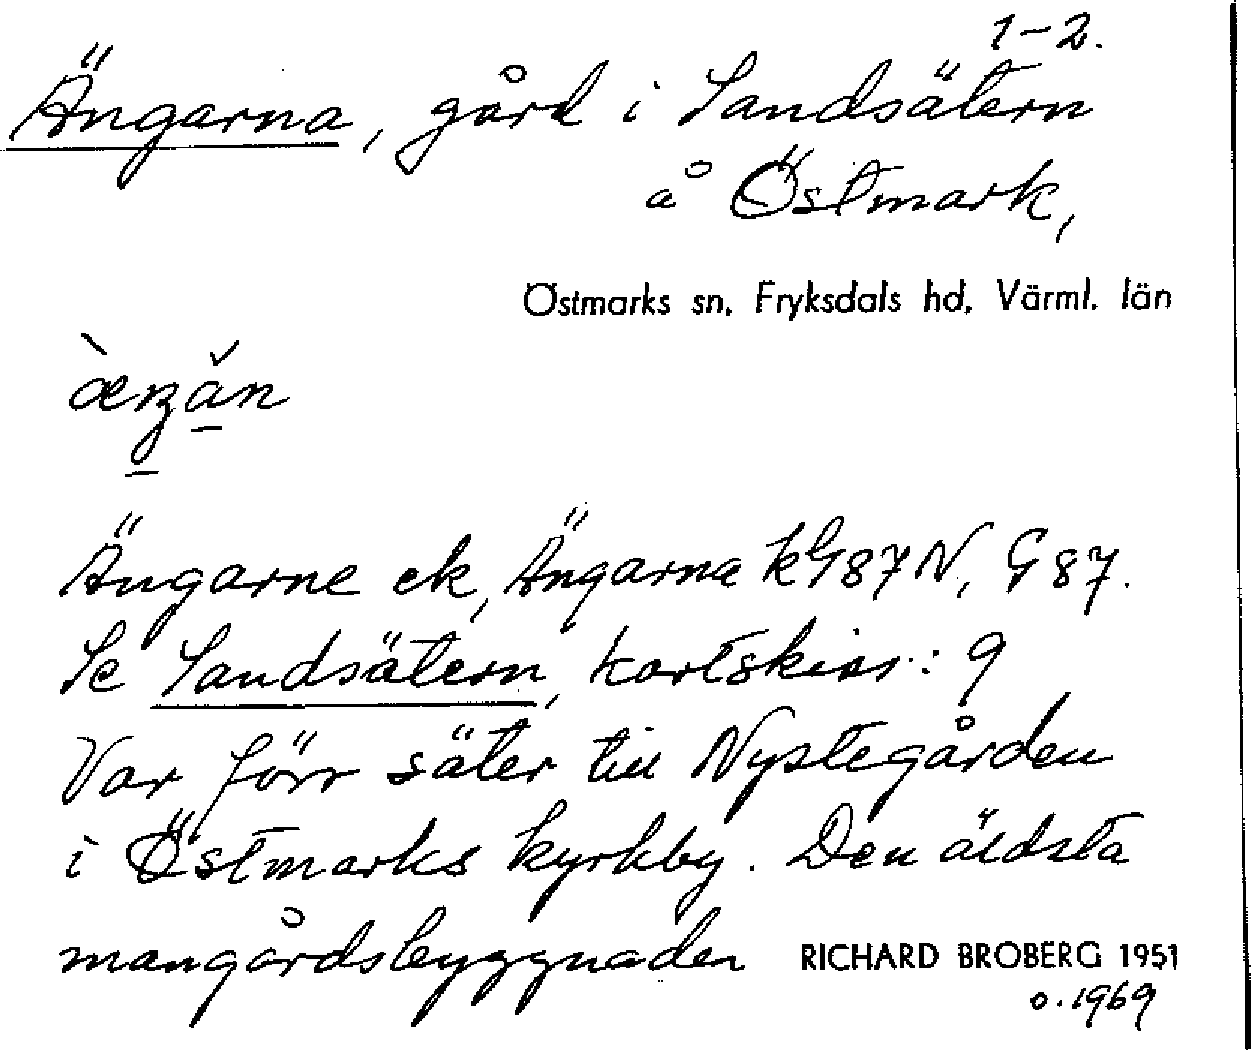 1-2.
Ängarna, gård i Sandsätern
å Östmark,
Östmarks sn, Fryksdals hd, Värml. län
Ängarne ek, Ängarna kG87N, G87.
Se Sandsätern, kartskiss: 9
Var förr säter till Nystegården
i Östmarks kyrkby. Den äldsta
mangårdsbyggnaden
RICHARD BROBERG 1951
o. 1969